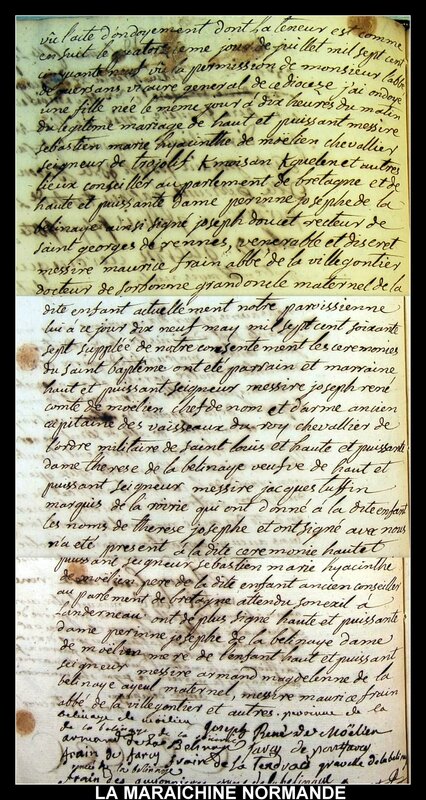 vû l'acte d'ondoyement dont la teneur est comme
ensuit le quatorzieme jour de juillet mil sept cent
cinquante neuf vû la permission de monsieur l'abbé
de guersans vicaire general de ce diocese j'ai ondoyé
une fille née le meme jour a dix heures du matin
du legitime mariage de haut et puissant messire
sebastien marie hyacinthe de moëlien chevallier
seigneur de trojolif et autres
lieux conseiller au parlement de bretagne et de
haute et puissante dame perinne josephe de la
belinaye ainsi signé joseph doucet recteur de
saint georges de rennes, venerable et discret
messire maurice frain abbé de la villegontier
docteur de sorbonne grand oncle maternel de la
dite enfant actuellement notre paroissienne
lui a ce jour dix neuf may mil sept cent soixante
sept supplée de notre consentement les ceremonies
du saint baptême ont eté parrain et marraine
haut et puissant seigneur messire joseph rené
comte de moelien chef de nom et d'arme ancien
capitaine des vaisseaux du roy chevallier de
l'ordre militaire de saint louis et haute et puissante
dame therese de la belinaye veufve de haut et
puissant seigneur messire jacques tuffin
marquis de la roirie qui ont donné a la dite enfant
les noms de therese josephe et ont signé avec nous
n'a eté present a la dite ceremonie haut et
puissant seigneur sebastien marie hyacinthe
de moëlien pere de la dite enfant ancien conseiller
au parlement de bretagne attendu son exil a
landerneau ont de plus signé haute et puissante
dame perinne josephe de la belinaye dame
de moëlien mere de l'enfant haut et puissant
seigneur messire armand magdelenne de la
belinaye ayeul maternel, messire maurice frain
abbé de la villegontier et autres.
belinaye de moëlien
Joseph René de Moëlien
armand de la Belinaye
frain du
de la belinaye
LA MARAICHINE NORMANDE